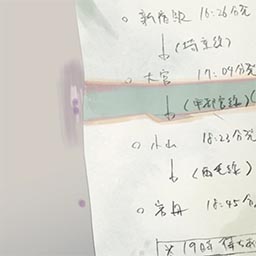 ○ 新宿駅 16:26分発
↓ (埼京線)
○ 大宮 17:04分発
↓ (宇都宮線) (
○ 小山 18:23分発
↓ (両毛線)
○ 岩舟 18:45分
※ 19時待ち